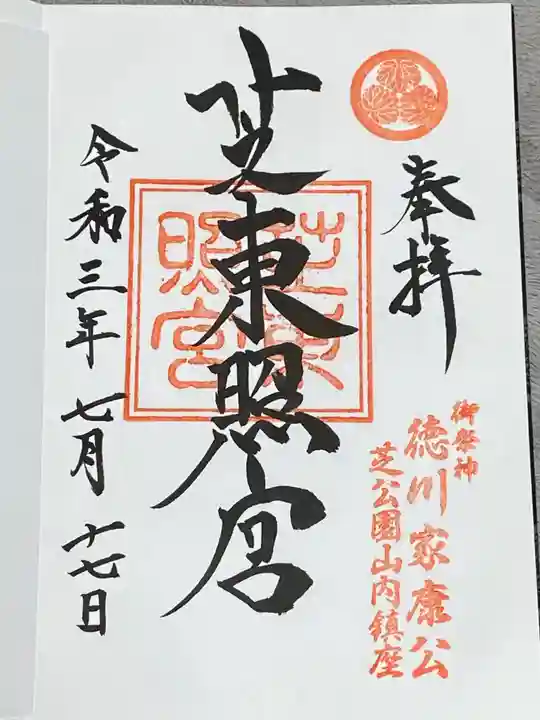 奉拝
御祭神
徳川家康公
芝公園山内鎮座
芝東照宮
芝東照宮
令和三年七月十七日